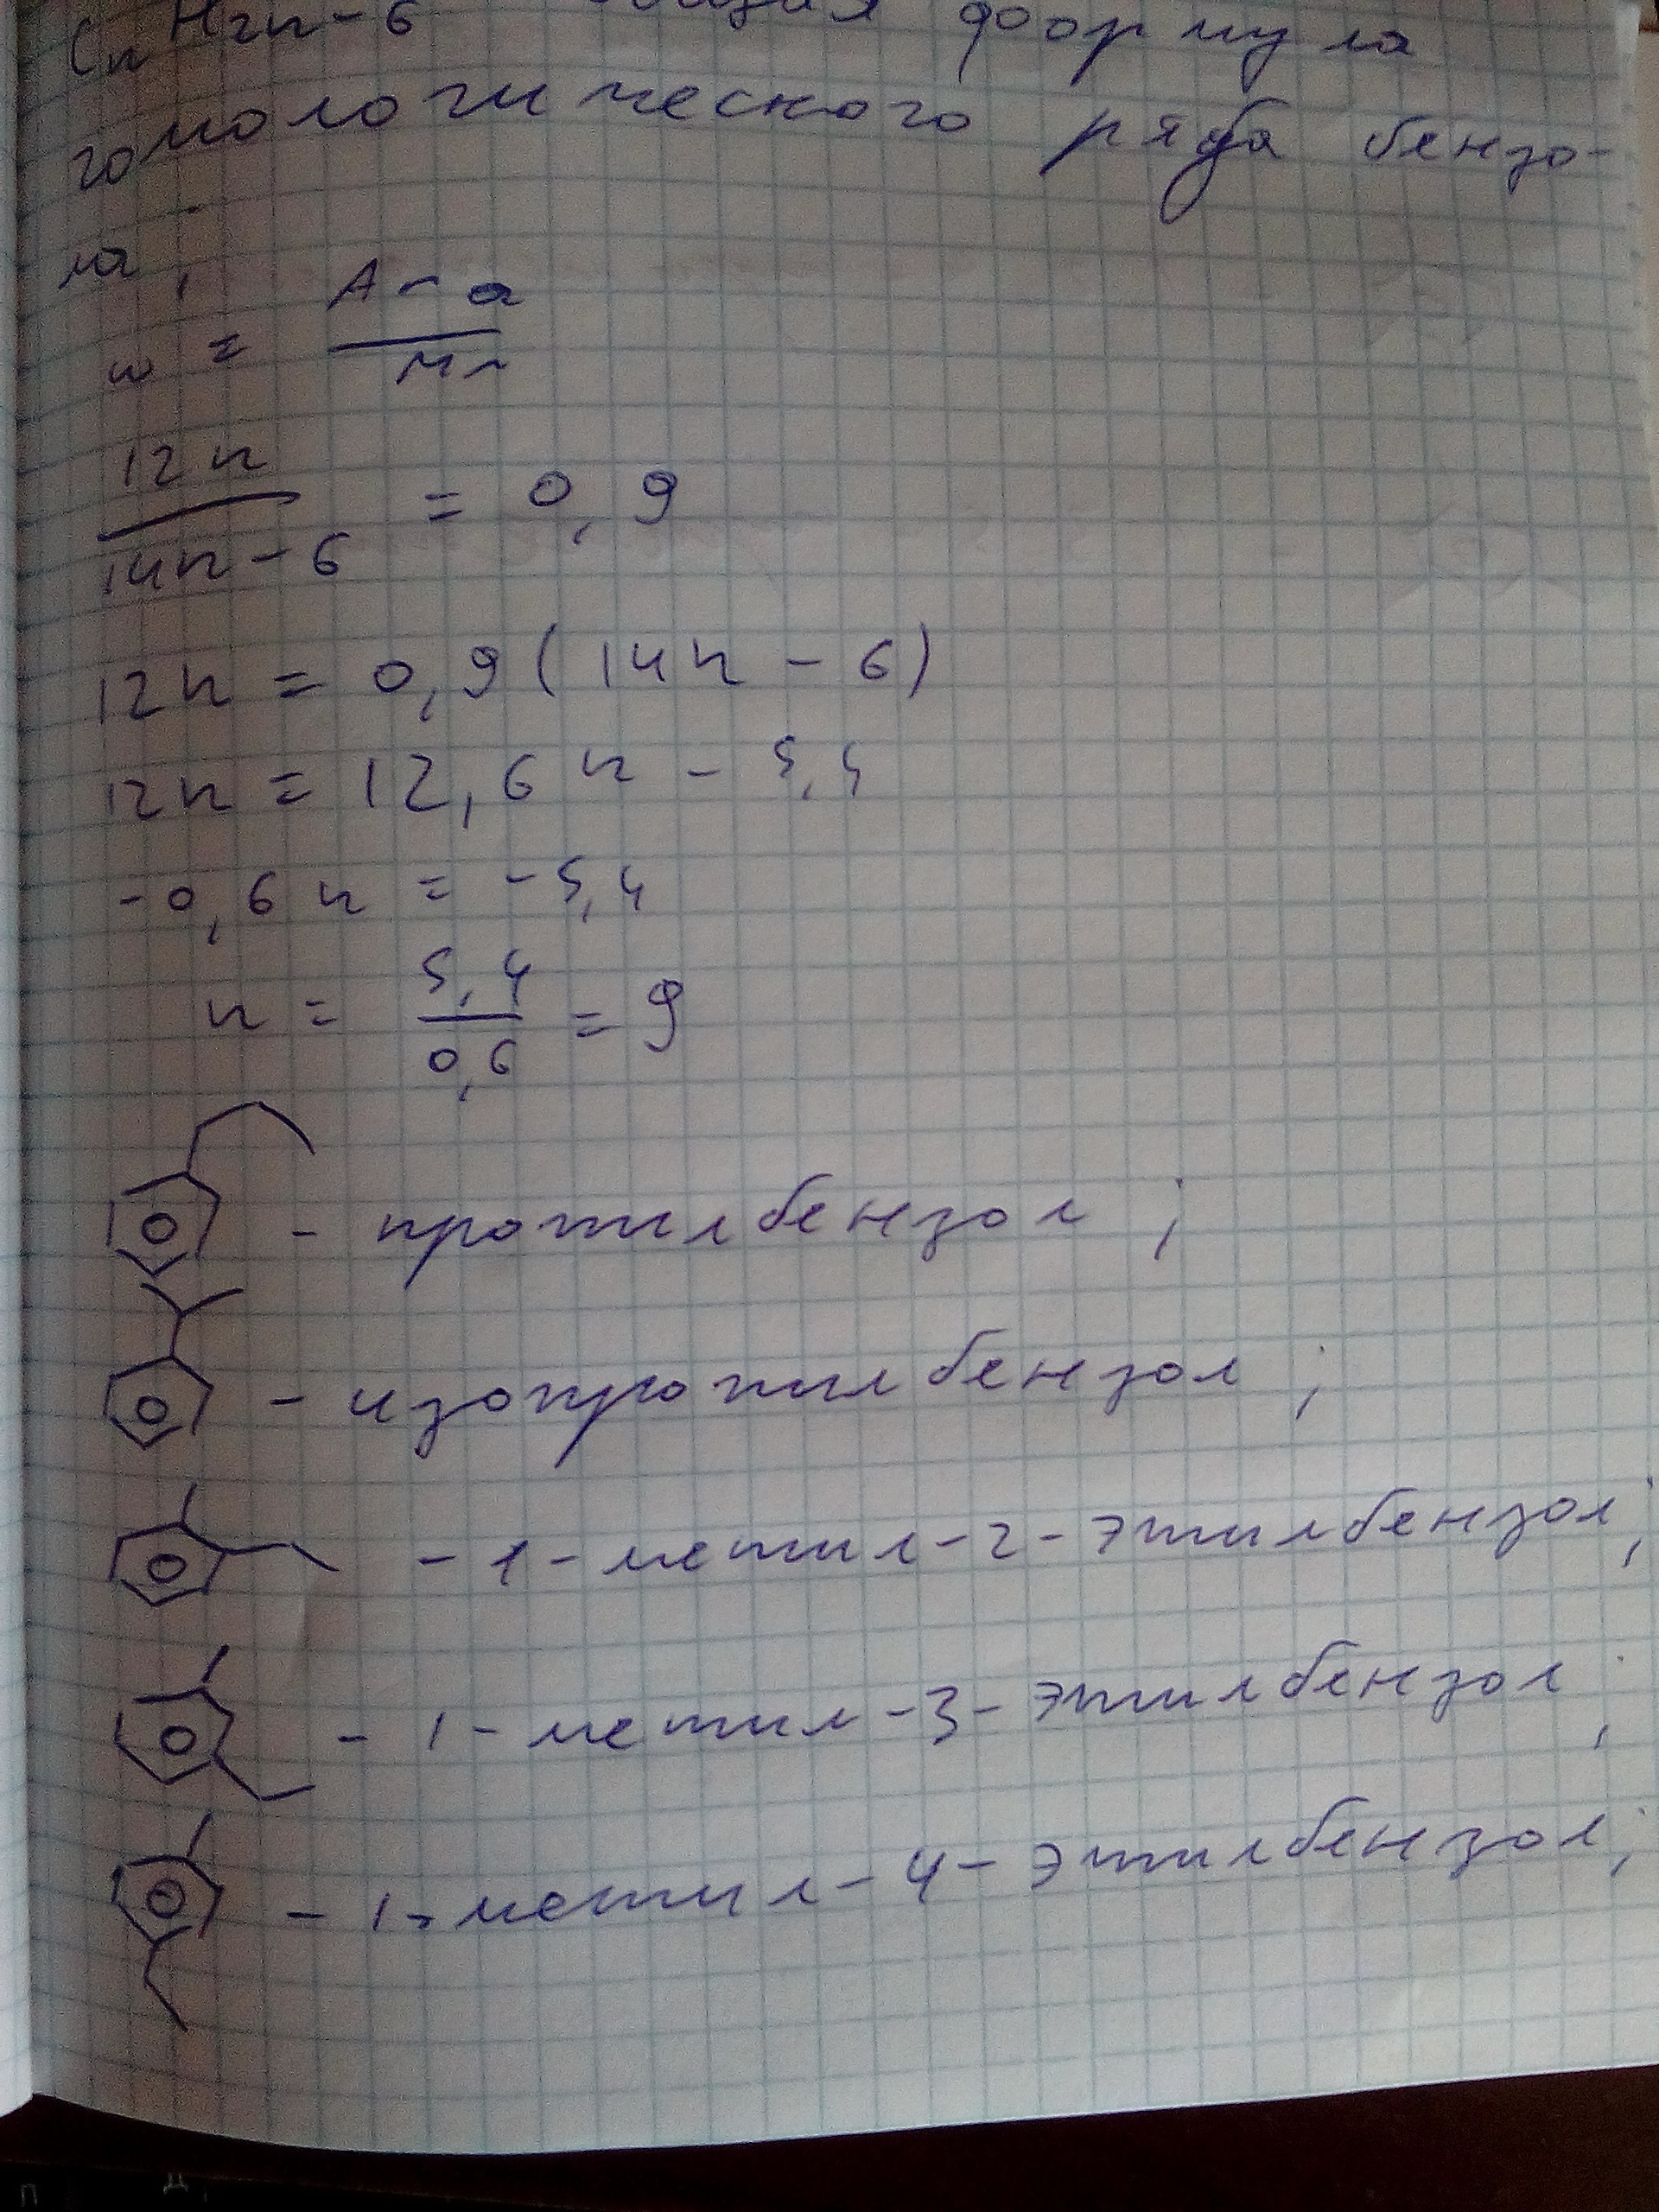 CnH2n-6 общая формула
гомологического ряда бензо-
ла;
w = Ar a / Mr
12n / 14n-6 = 0,9
12n = 0,9(14n - 6)
12n = 12,6n - 5,4
-0,6n = -5,4
n = 5,4 / 0,6 = 9
- пропилбензол;
- изопропилбензол;
- 1-метил-2-этилбензол;
- 1-метил-3-этилбензол;
- 1-метил-4-этилбензол;
П Д